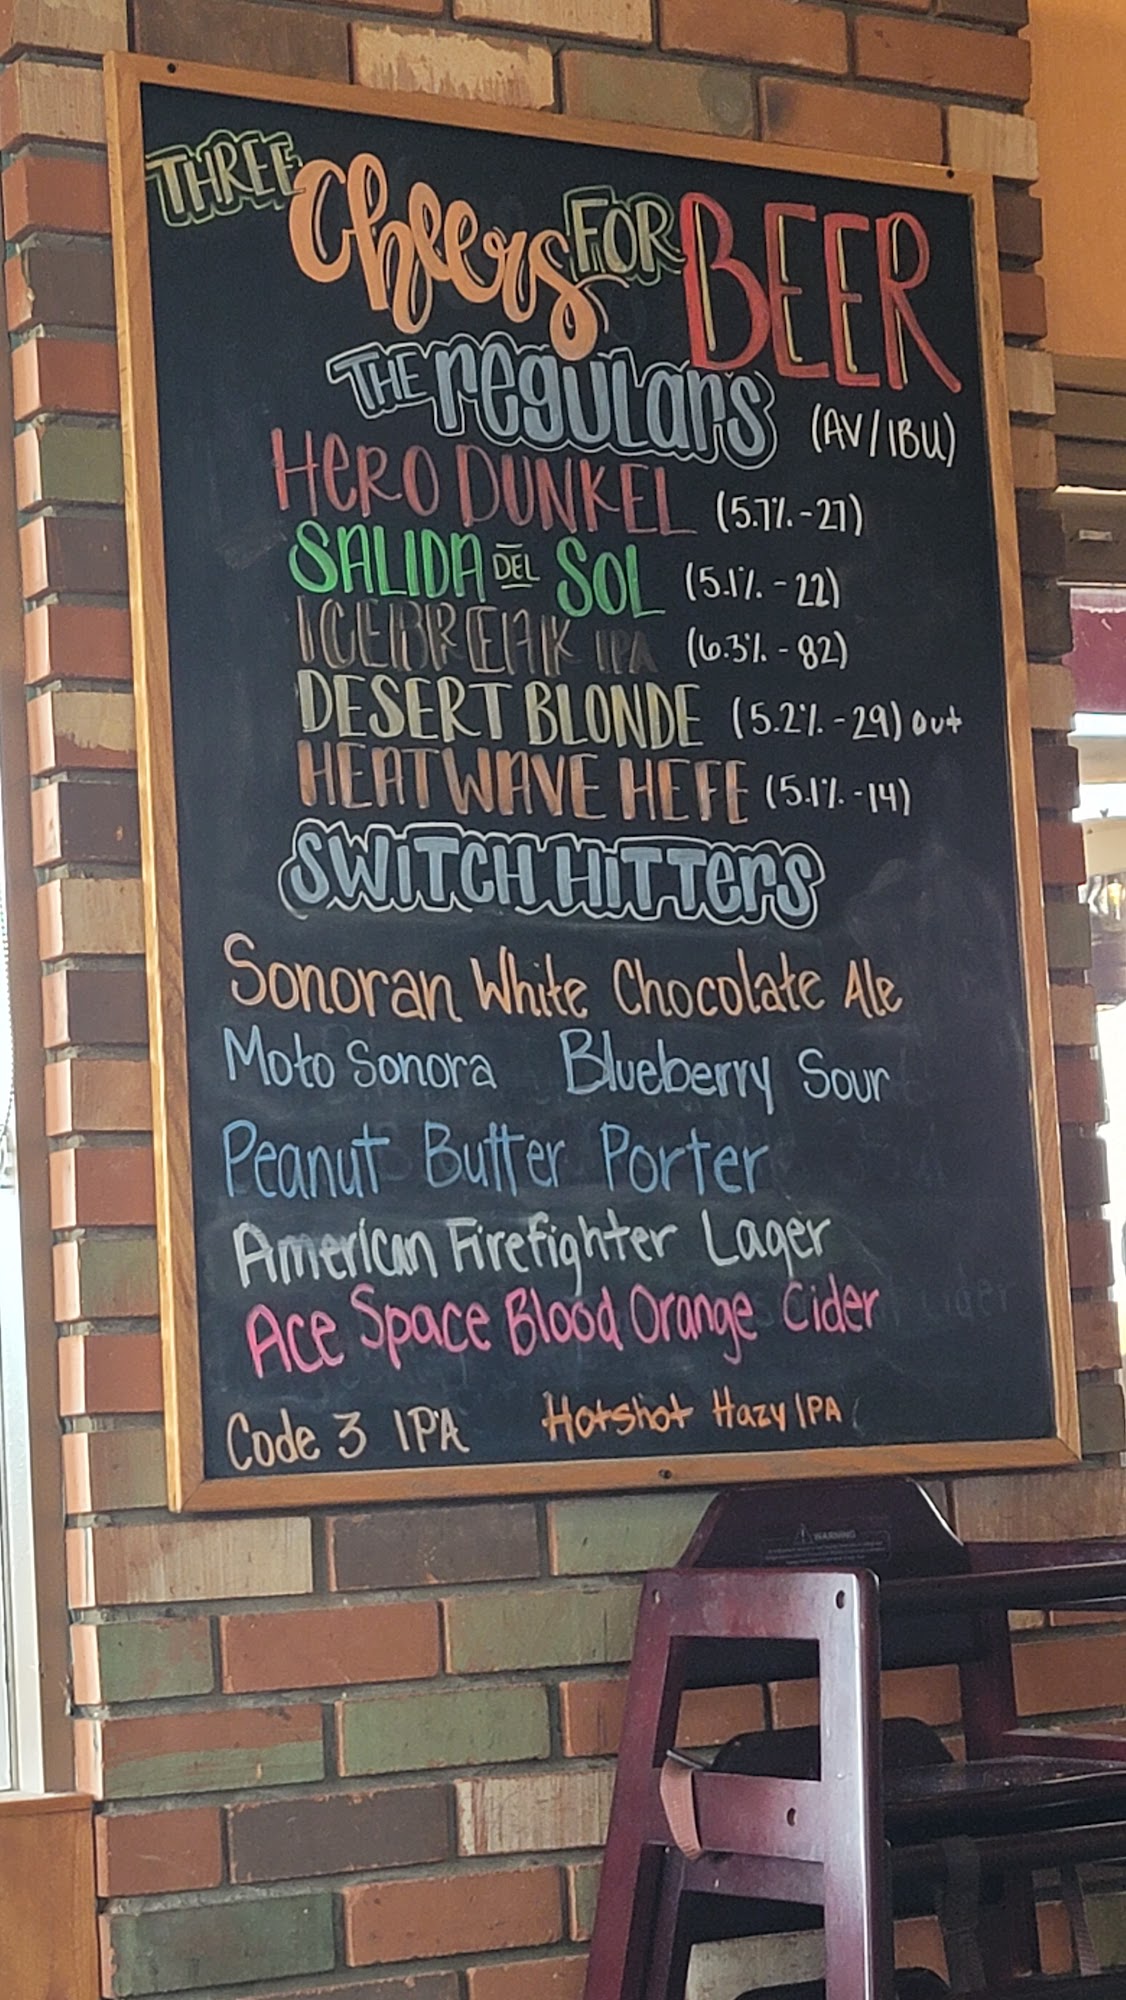 THREE Cheers FOR BEER
THE regulars (AV/IBU)
HERO DUNKEL (5.7%-27)
SALIDA DEL SOL (5.1%-22)
ICEBREAK IPA (6.3%-82)
DESERT BLONDE (5.2%-29) out
HEATWAVE HEFE (5.1%-14)
SWITCH HITTERS
Sonoran White Chocolate Ale
Moto Sonora Blueberry Sour
Peanut Butter Porter
American Firefighter Lager
Ace Space Blood Orange Cider
Code 3 IPA Hotshot Hazy IPA
WARNING